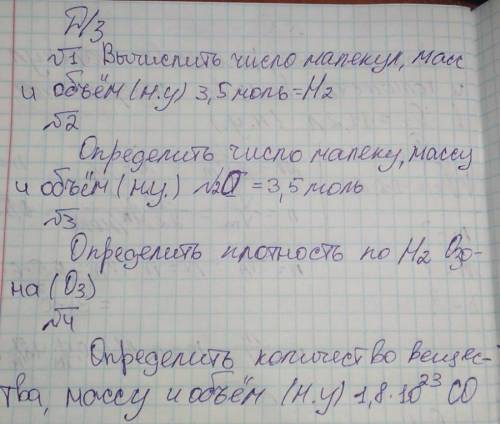 Д/З
№1 Вычислить число малекул, масс
и объём (н.у) 3,5 моль = H2
№2
Определить число малеку, массу
и объём (н.у.) N2O = 3,5 моль
№3
Определить плотность по H2 Озо-
на (O3)
№4
Определить количество вещес-
тва, массу и объём (н.у) 1,8·10²³ CO